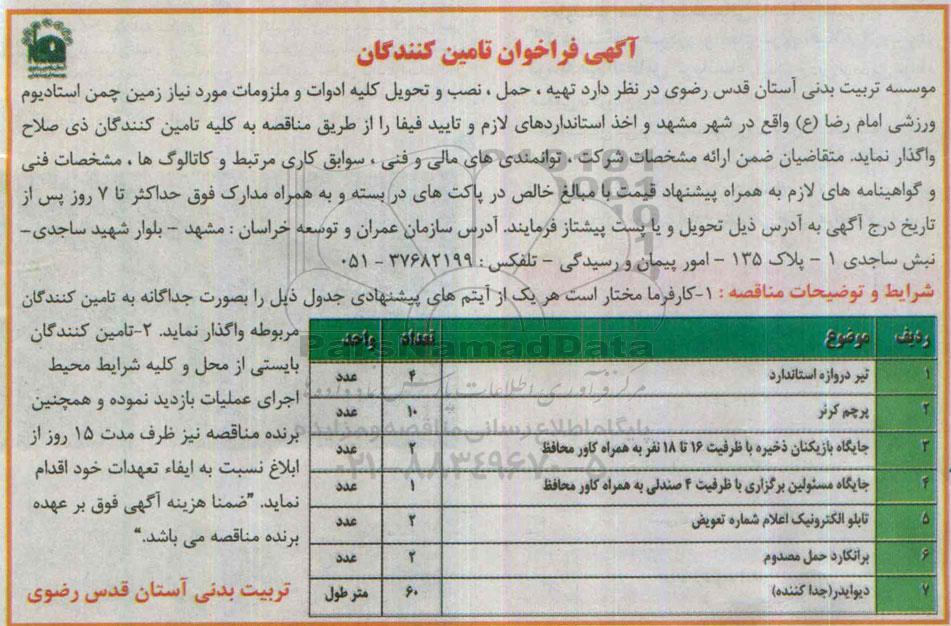 آگهی فراخوان تامین کنندگان
موسسه تربیت بدنی آستان قدس رضوی در نظر دارد تهیه ، حمل ، نصب و تحویل کلیه ادوات و ملزومات مورد نیاز زمین چمن استادیوم
ورزشی امام رضا (ع) واقع در شهر مشهد و اخذ استانداردهای لازم و تایید فیفا را از طریق مناقصه به کلیه تامین کنندگان ذی صلاح
واگذار نماید. متقاضیان ضمن ارائه مشخصات شرکت ، توانمندی های مالی و فنی ، سوابق کاری مرتبط و کاتالوگ ها ، مشخصات فنی
و گواهینامه های لازم به همراه پیشنهاد قیمت با مبالغ خالص در پاکت های در بسته و به همراه مدارک فوق حداکثر تا ۷ روز پس از
تاریخ درج آگهی به آدرس ذیل تحویل و یا پست پیشتاز فرمایند. آدرس سازمان عمران و توسعه خراسان : مشهد - بلوار شهید ساجدی-
نبش ساجدی ۱ - پلاک ۱۳۵ - امور پیمان و رسیدگی - تلفکس : ۳۷۶۸۲۱۹۹ - ۰۵۱
شرایط و توضیحات مناقصه : ۱-کارفرما مختار است هر یک از آیتم های پیشنهادی جدول ذیل را بصورت جداگانه به تامین کنندگان
مربوطه واگذار نماید. ۲-تامین کنندگان
بایستی از محل و کلیه شرایط محیط
اجرای عملیات بازدید نموده و همچنین
برنده مناقصه نیز ظرف مدت ۱۵ روز از
ابلاغ نسبت به ایفاء تعهدات خود اقدام
نماید. "ضمنا هزینه آگهی فوق بر عهده
برنده مناقصه می باشد."
ردیف موضوع تعداد واحد
۱ تیر دروازه استاندارد ۴ عدد
۲ پرچم کرنر ۱۰ عدد
۳ جایگاه بازیکنان ذخیره با ظرفیت ۱۶ تا ۱۸ نفر به همراه کاور محافظ ۲ عدد
۴ جایگاه مسئولین برگزاری با ظرفیت ۴ صندلی به همراه کاور محافظ ۱ عدد
۵ تابلو الکترونیک اعلام شماره تعویض ۲ عدد
۶ برانکارد حمل مصدوم ۲ عدد
۷ دیوایدر(جدا کننده) ۶۰ متر طول
تربیت بدنی آستان قدس رضوی
ParsNamadData
پایگاه اطلاع رسانی مناقصه و مزایده
۰۲۱-۸۸۳۴۹۶۷۰-۵